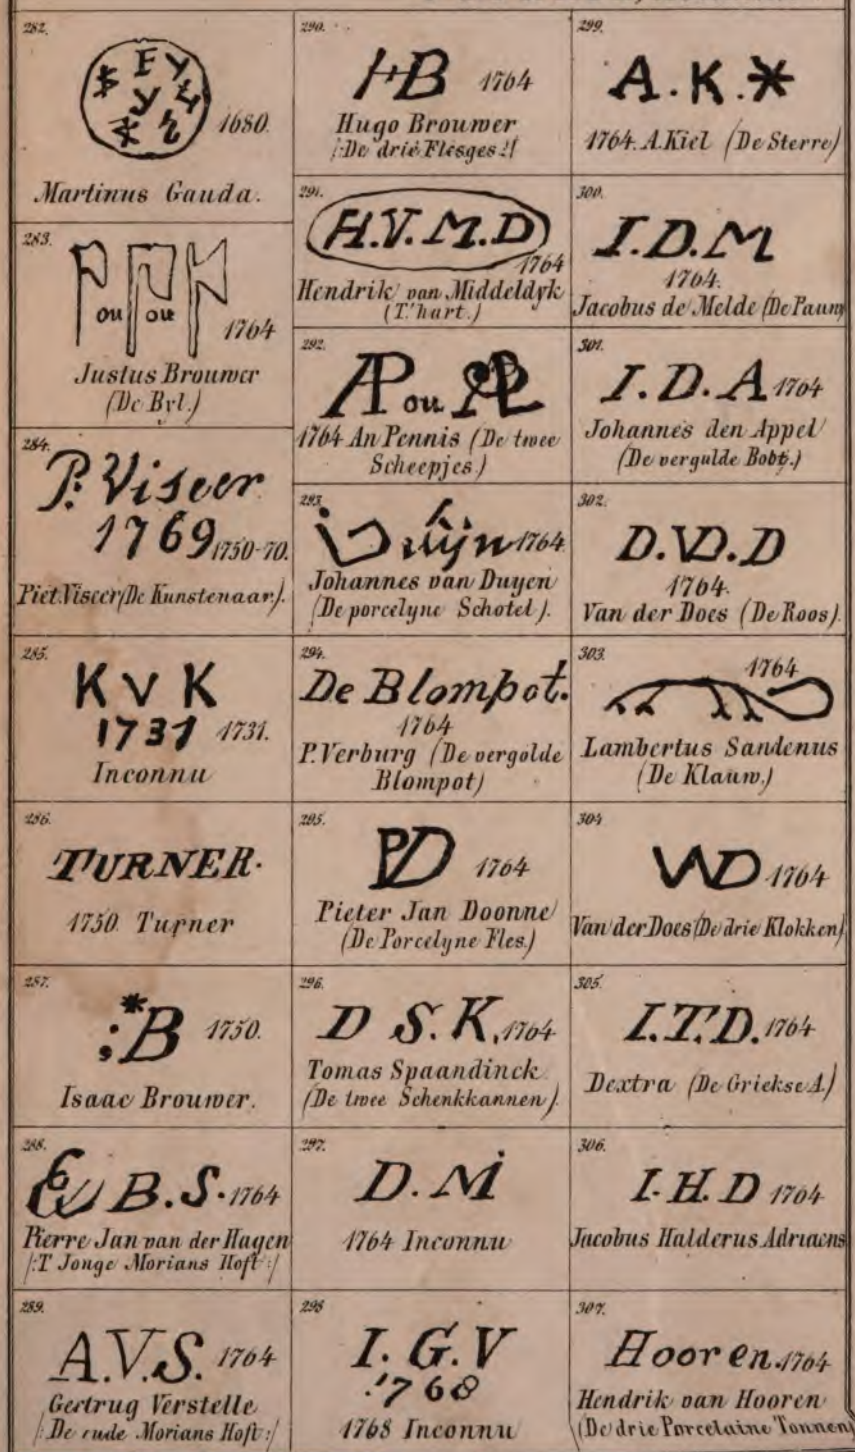 282.
1680.
Martinus Gauda.
283.
ou ou
1764
Justus Brouwer
(De Byl.)
284.
P. Viseer
1769 1750-70.
Piet. Viseer (De Kunstenaar).
285.
K V K
1731 1731.
Inconnu
286.
TURNER.
1750. Turner
287.
:*B 1750.
Isaac Brouwer.
288.
B.S. 1764
Pierre Jan van der Hagen
/:T Jonge Morians Hoft:/
289.
A.V.S. 1764
Gertrug Verstelle
/:De oude Morians Hoft:/
290.
HB 1764
Hugo Brouwer
/:De drie Flesges:/
291.
H.V.M.D
1764
Hendrik van Middeldyk
(T.'hart.)
292.
AP ou AP
1764 An Pennis (De twee
Scheepjes.)
293.
Duijn 1764
Johannes van Duyen
(De porcelyne Schotel).
294.
De Blompot.
1764
P. Verburg (De vergolde
Blompot)
295.
PD 1764
Pieter Jan Doonne
(De Porcelyne Fles.)
296.
D S. K. 1764
Tomas Spaandinck
(De twee Schenkkannen).
297.
D. M
1764 Inconnu
298
I. G. V
1768
1768 Inconnu
299.
A. K. *
1764. A. Kiel (De Sterre)
300.
I. D. M
1764.
Jacobus de Melde (De Pauw)
301.
I. D. A 1764
Johannes den Appel
(De vergulde Bobt.)
302.
D. VD. D
1764.
Van der Does (De Roos).
303.
1764
Lambertus Sandenus
(De Klauw.)
304
VVD 1764
Van der Does (De drie Klokken)
305.
I.T.D. 1764
Dextra (De Griekse A.)
306.
I. H. D 1764
Jacobus Halderus Adriaens
307.
Hooren. 1764
Hendrik van Hooren
(De drie Porcelaine Tonnen)